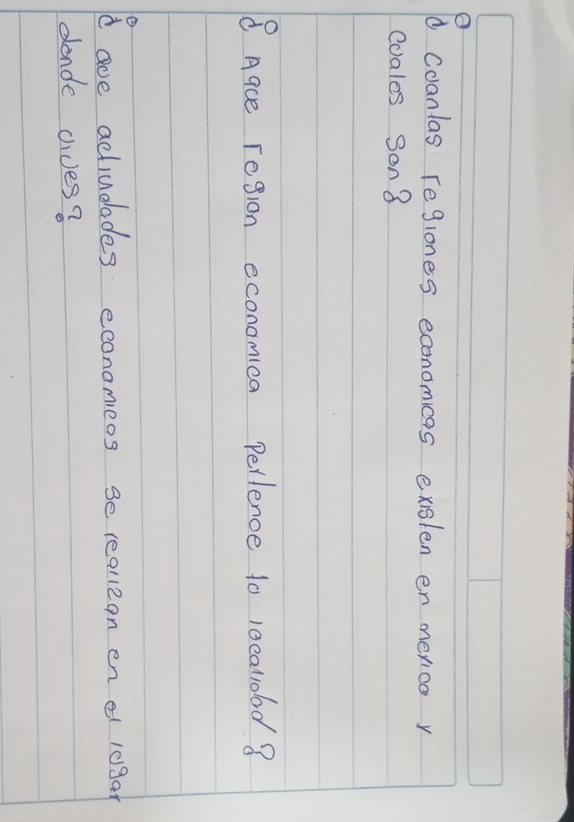 ¿Cuantas regiones economicas existen en mexico y
cuales son?
¿Aque region economica pertenece tu localidad?
¿que actividades economicas se realizan en el lugar
donde vives?